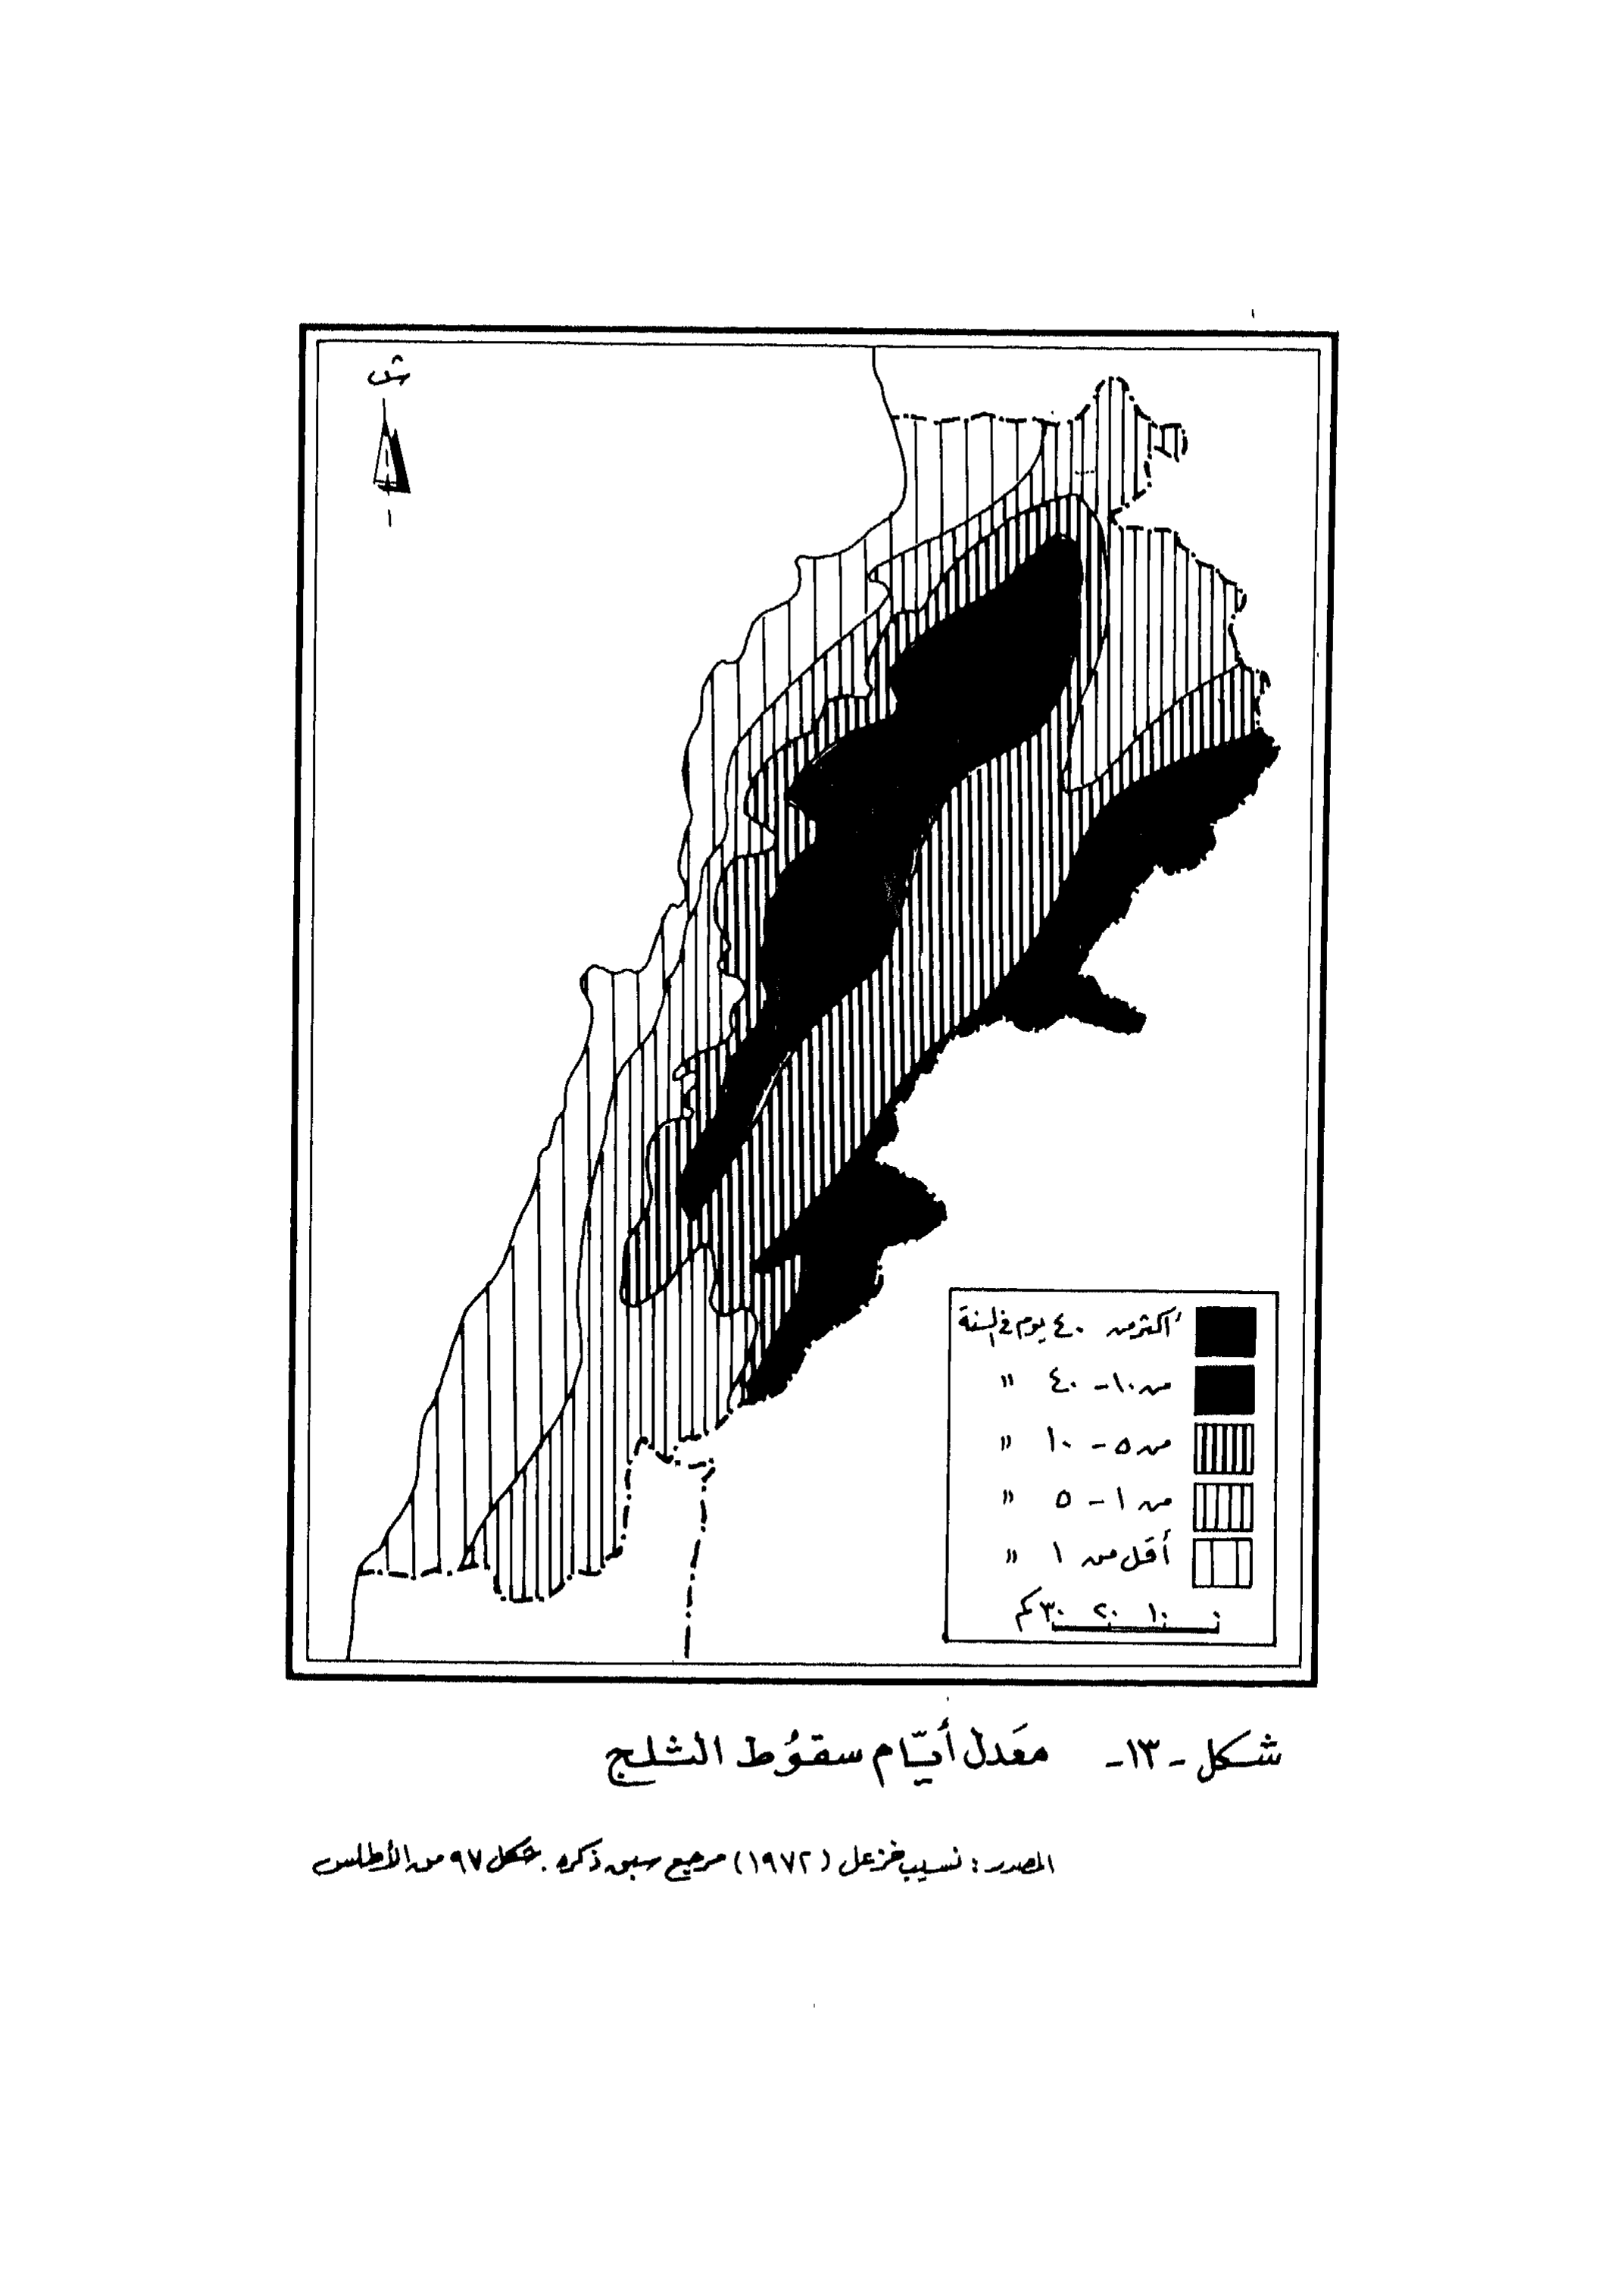 ش
أكثر من ٤٠ يوم في السنة
من ١٠ - ٤٠ "
من ٥ - ١٠ "
من ١ - ٥ "
أقل من ١ "
٠ ١٠ ٢٠ ٣٠ كم
شكل - ١٣ - معَدل أيّام سقوُط الثلج
المصدر : نسيب خزعل (١٩٧٢) مرجع سبق ذكره . شكل ٩٧ من الأطلس